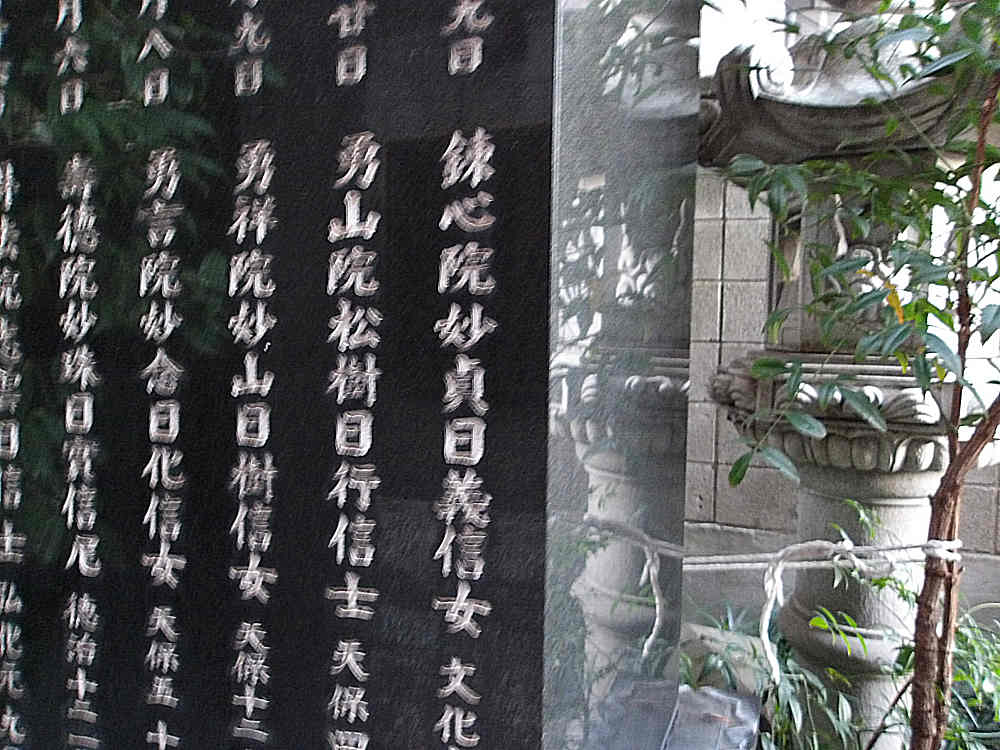 九日 錬心院妙貞日義信女 文化
廿日 勇山院松樹日行信士 天保
九日 勇祥院妙山日樹信女 天保十二
八日 勇言院妙念日化信女 天保五 十
月六日 徳院妙珠日寳信尼
院 日信士 弘化元 九